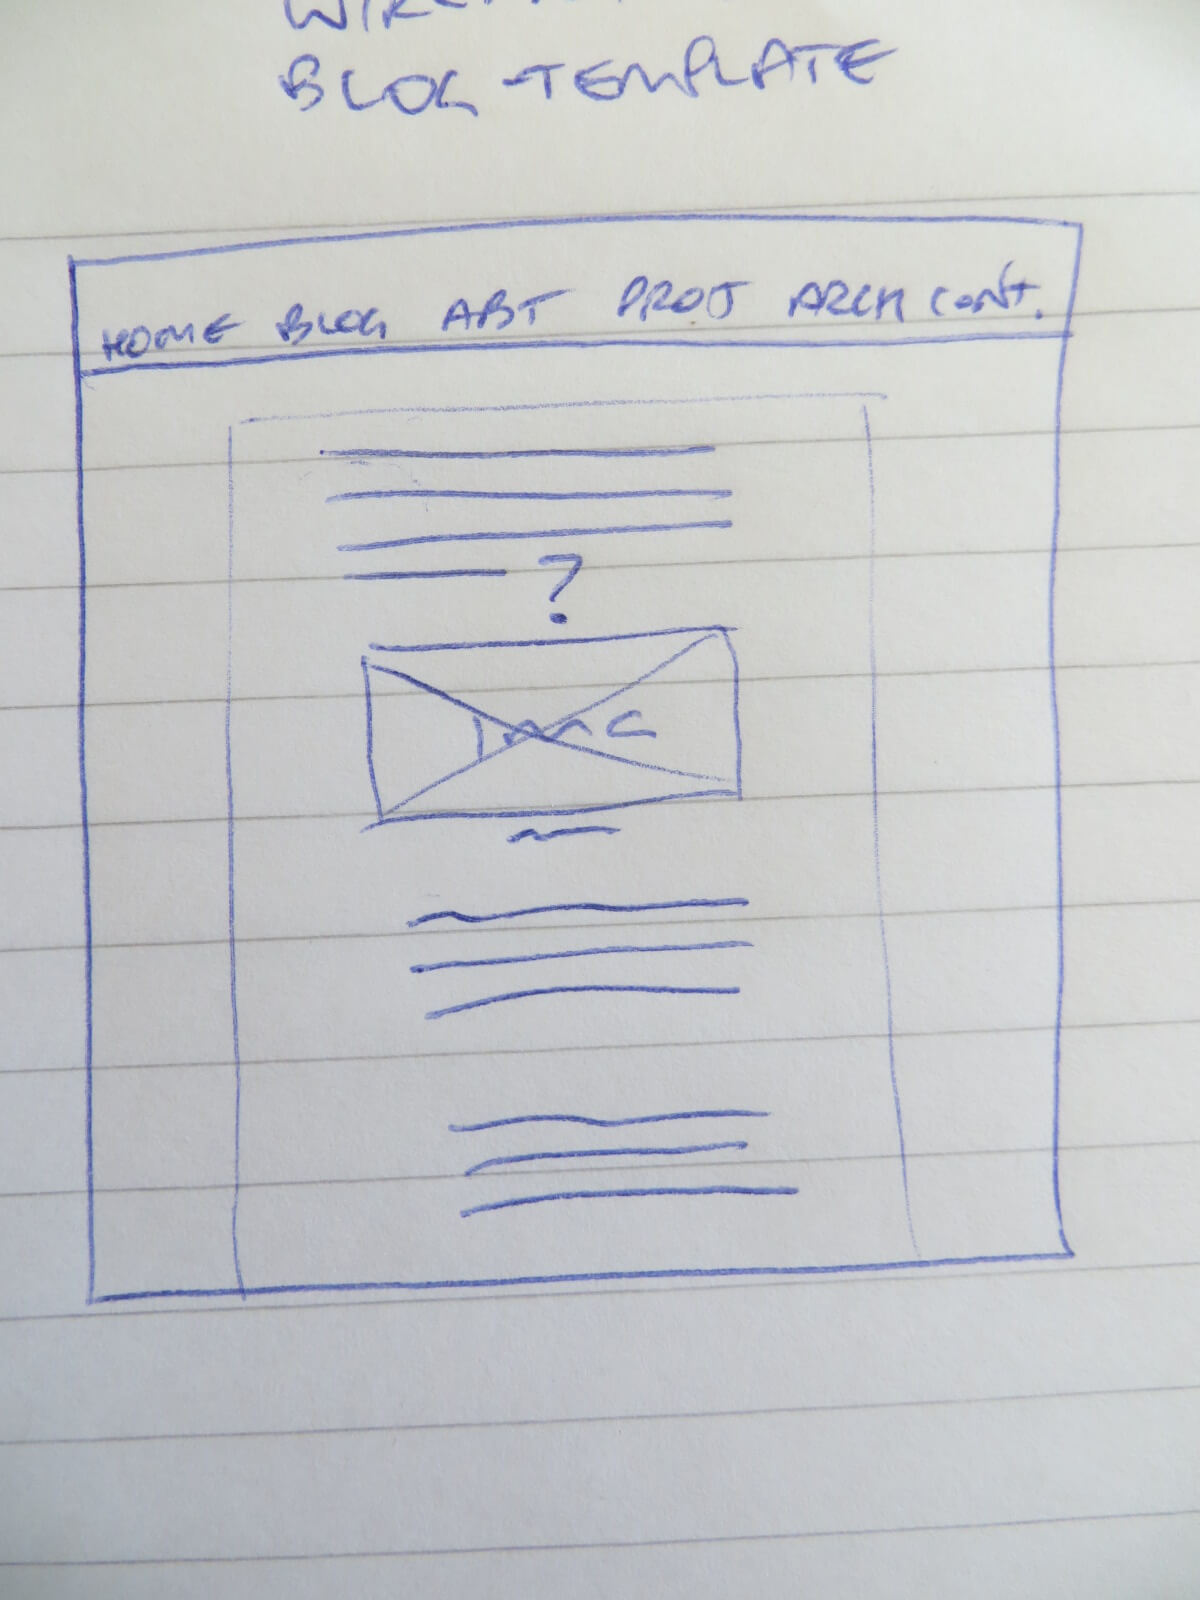 BLOG TEMPLATE
HOME BLOG ABT PROJ ARCH CONT.
?
IMG